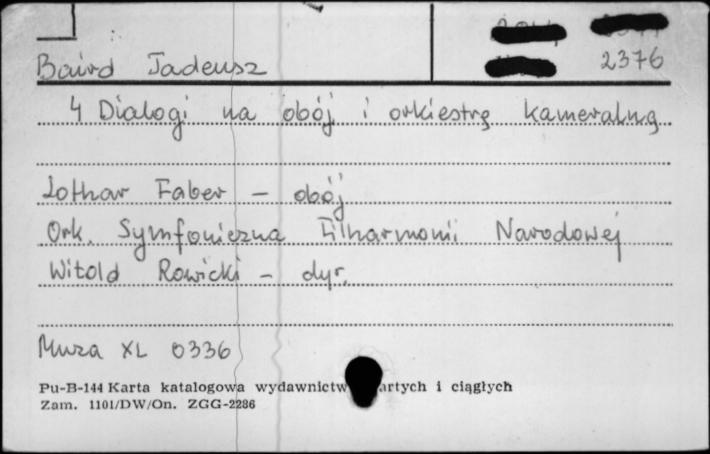 Baird Tadeusz
2376
4 Dialogi na obój i orkiestrę kameralną
Lothar Faber - obój
Ork. Symfoniczna Filharmonii Narodowej
Witold Rowicki - dyr.
Muza XL 0336
Pu-B-144 Karta katalogowa wydawnictw i ciągłych
Zam. 1101/DW/On. ZGG-2286